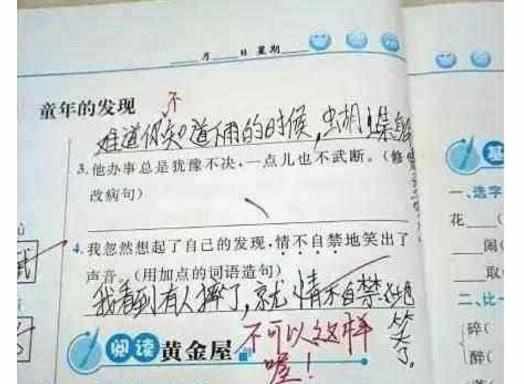 月 日 星期
童年的发现
不
难道你知道下雨的时候,蝴蝶
3.他办事总是犹豫不决,一点儿也不武断。(修
改病句)
4.我忽然想起了自己的发现,情不自禁地笑出了
声音。(用加点的词语造句)
我看到有人摔了,就情不自禁地
笑了。
阅读 黄金屋
不可以这样
喔!
基
一、选字
花 (
闹(
取(
二、比一
碎(
醉(